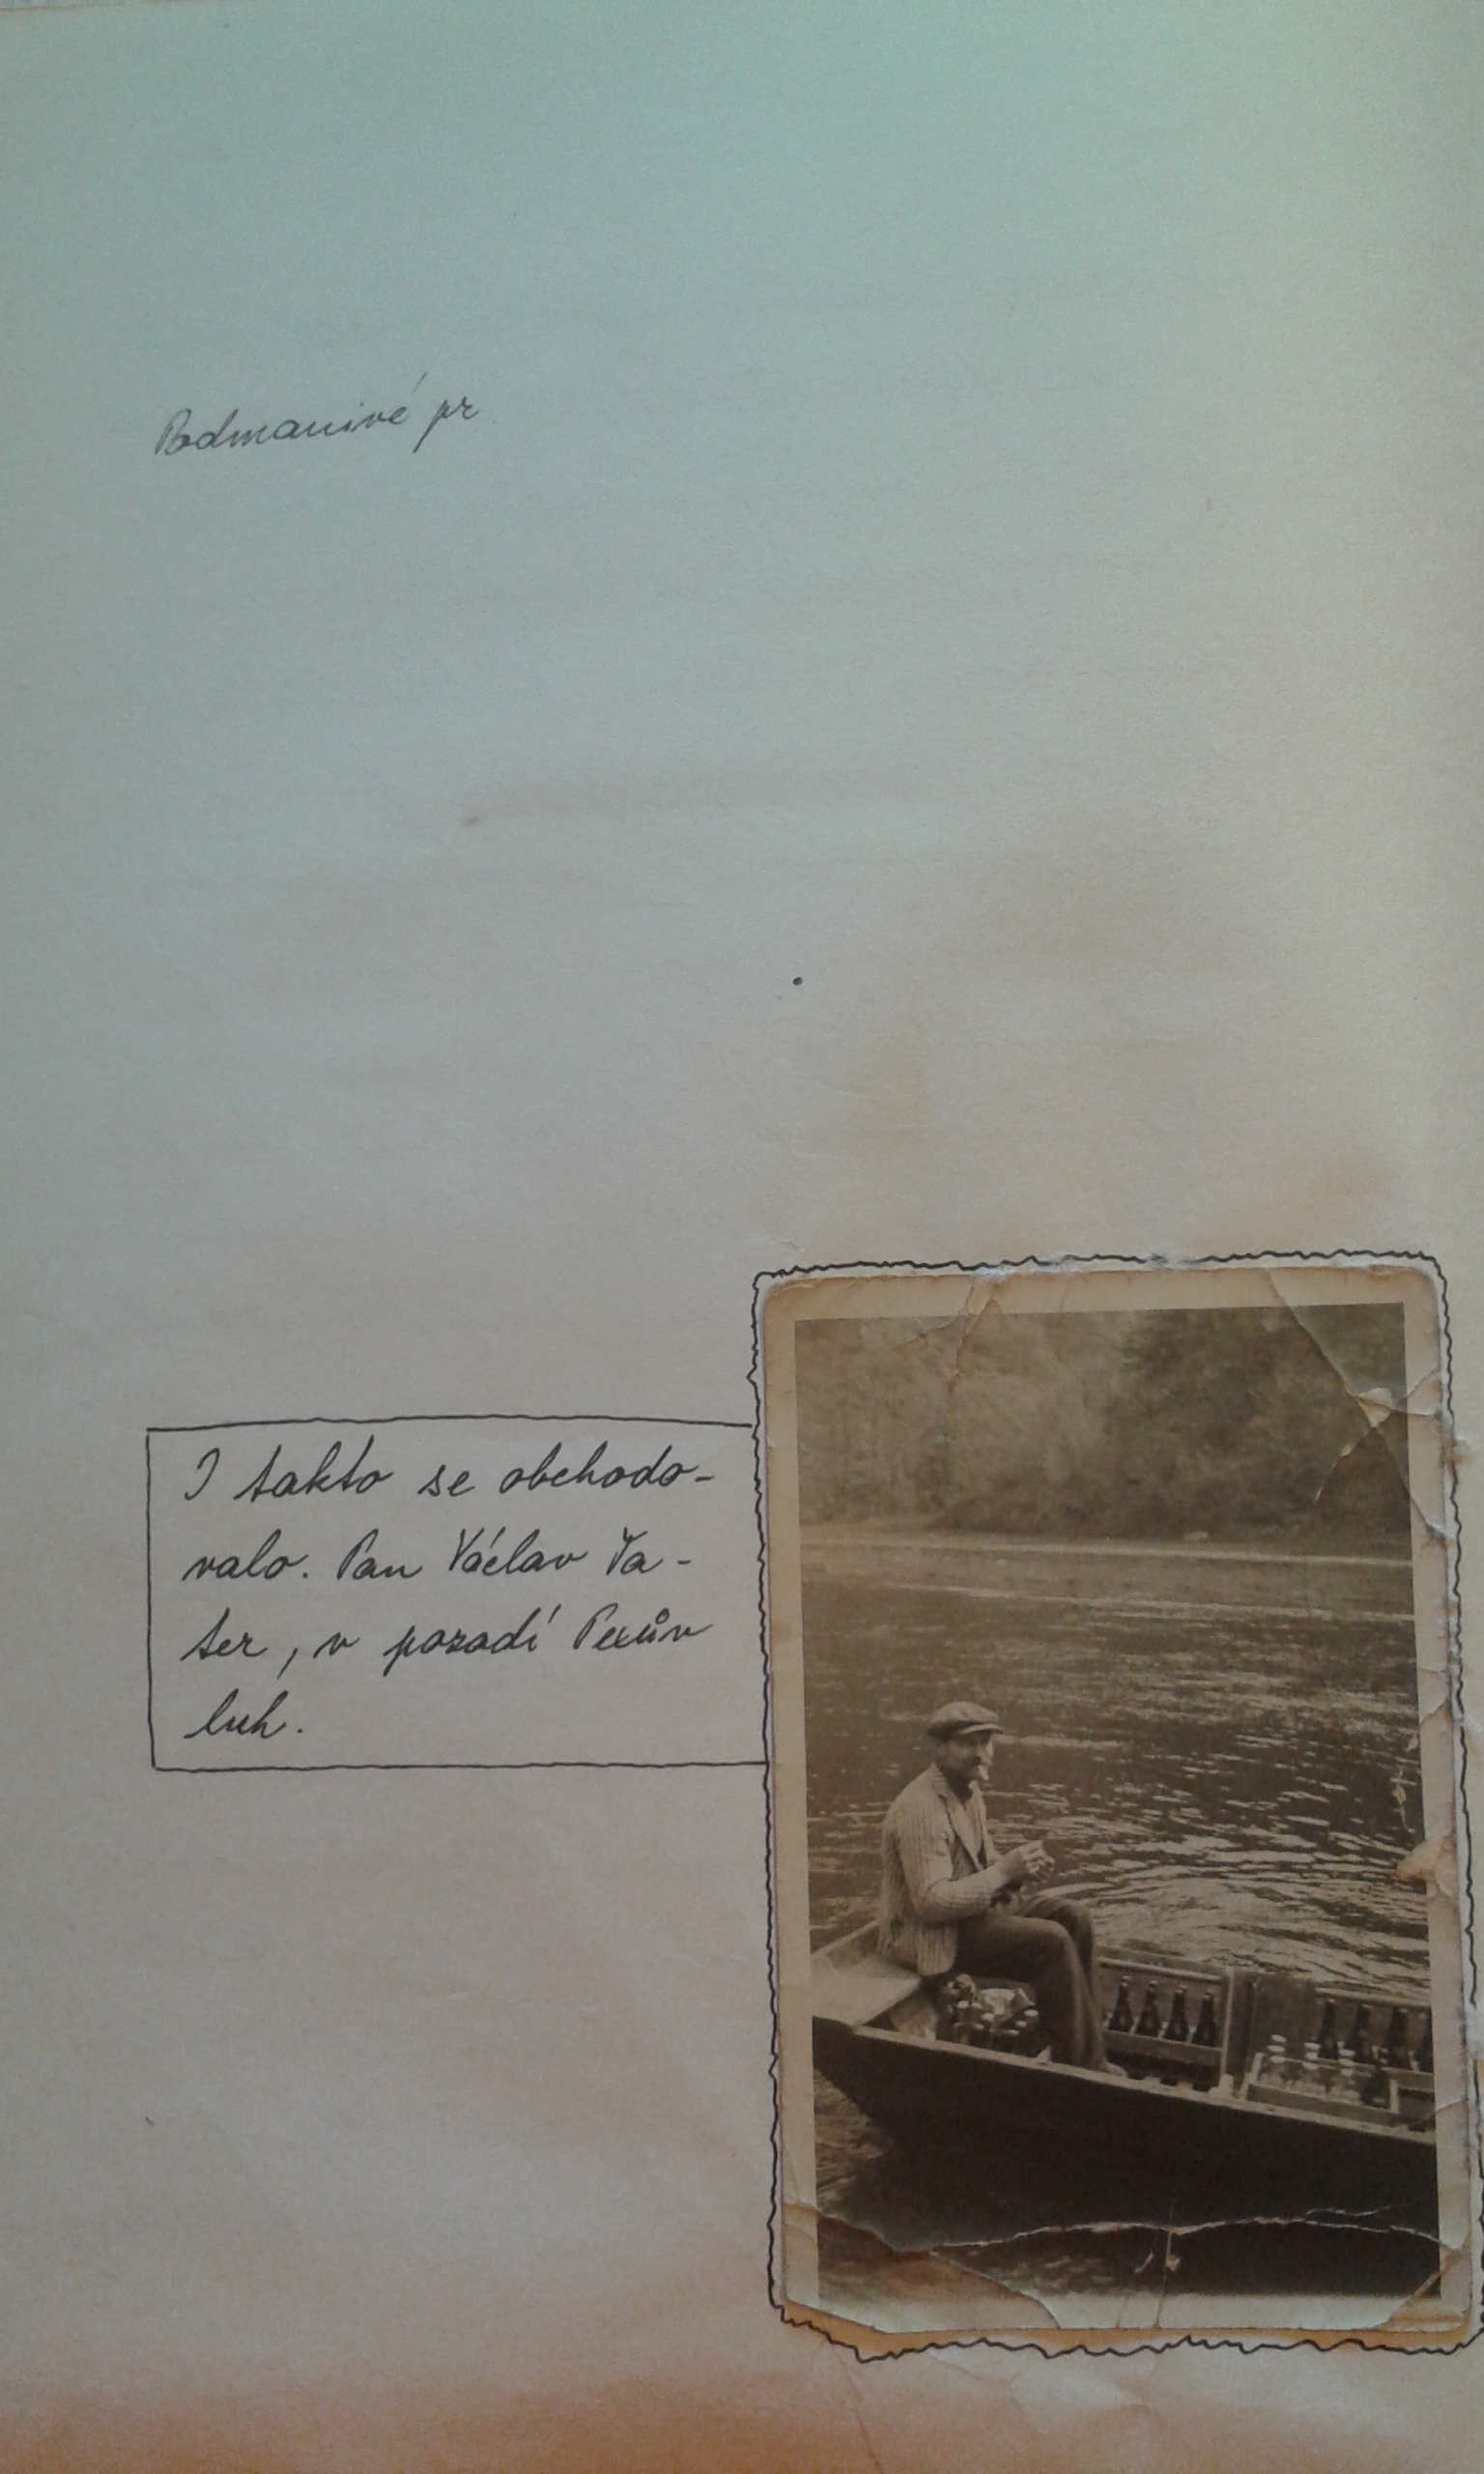 Podmanivé pr
I takto se obchodo-
valo. Pan Václav Va-
ter, v pozadí Pexův
luh.